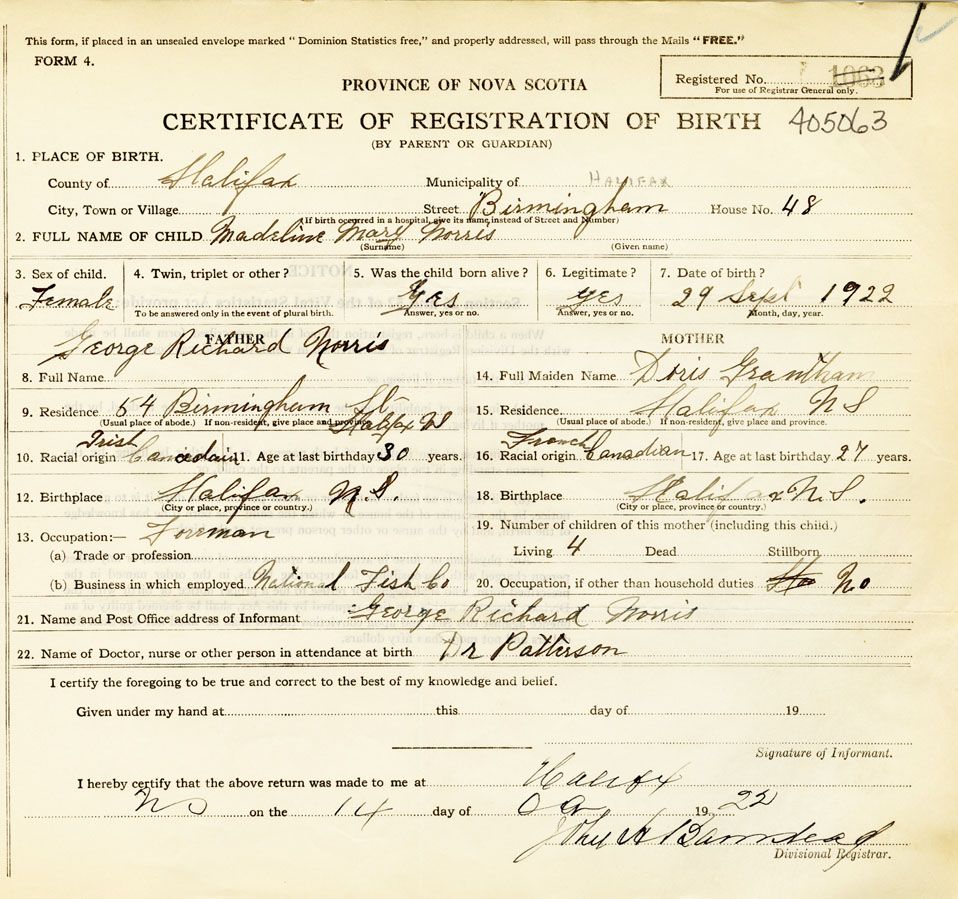 This form, if placed in an unsealed envelope marked "Dominion Statistics free," and properly addressed, will pass through the Mails "FREE."
FORM 4.
Registered No. 1063
For use of Registrar General only.
PROVINCE OF NOVA SCOTIA
CERTIFICATE OF REGISTRATION OF BIRTH 405063
(BY PARENT OR GUARDIAN)
1. PLACE OF BIRTH.
County of Halifax Municipality of HALIFAX
City, Town or Village Street Birmingham House No. 48
(If birth occurred in a hospital, give its name instead of Street and Number)
2. FULL NAME OF CHILD Madeline Mary Norris
(Surname) (Given name)
3. Sex of child. 4. Twin, triplet or other? 5. Was the child born alive? 6. Legitimate? 7. Date of birth?
Female Yes yes 29 Sept 1922
To be answered only in the event of plural birth. Answer, yes or no. Answer, yes or no. Month, day, year.
FATHER MOTHER
George Richard Norris
8. Full Name 14. Full Maiden Name Doris Grantham
9. Residence 54 Birmingham St- 15. Residence. Halifax N S
(Usual place of abode.) If non-resident, give place and province. Halifax N S (Usual place of abode.) If non-resident, give place and province.
Irish French
10. Racial origin Canadain 11. Age at last birthday 30 years. 16. Racial origin Canadian 17. Age at last birthday 27 years.
12. Birthplace Halifax N.S. 18. Birthplace Halifax N.S.
(City or place, province or country.) (City or place, province or country.)
13. Occupation:— Foreman 19. Number of children of this mother (including this child.)
(a) Trade or profession Living 4 Dead Stillborn
(b) Business in which employed National Fish Co 20. Occupation, if other than household duties No
21. Name and Post Office address of Informant George Richard Norris
22. Name of Doctor, nurse or other person in attendance at birth Dr Patterson
I certify the foregoing to be true and correct to the best of my knowledge and belief.
Given under my hand at this day of 19
Signature of Informant.
I hereby certify that the above return was made to me at Halifax
N S on the 14 day of 19 22
Divisional Registrar.